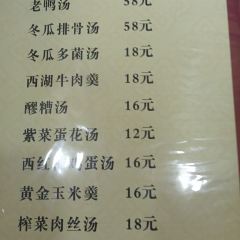 老鸭汤 58元
冬瓜排骨汤 58元
冬瓜多菌汤 18元
西湖牛肉羹 18元
醪糟汤 16元
紫菜蛋花汤 12元
西红 鸡蛋汤 16元
黄金玉米羹 16元
榨菜肉丝汤 18元